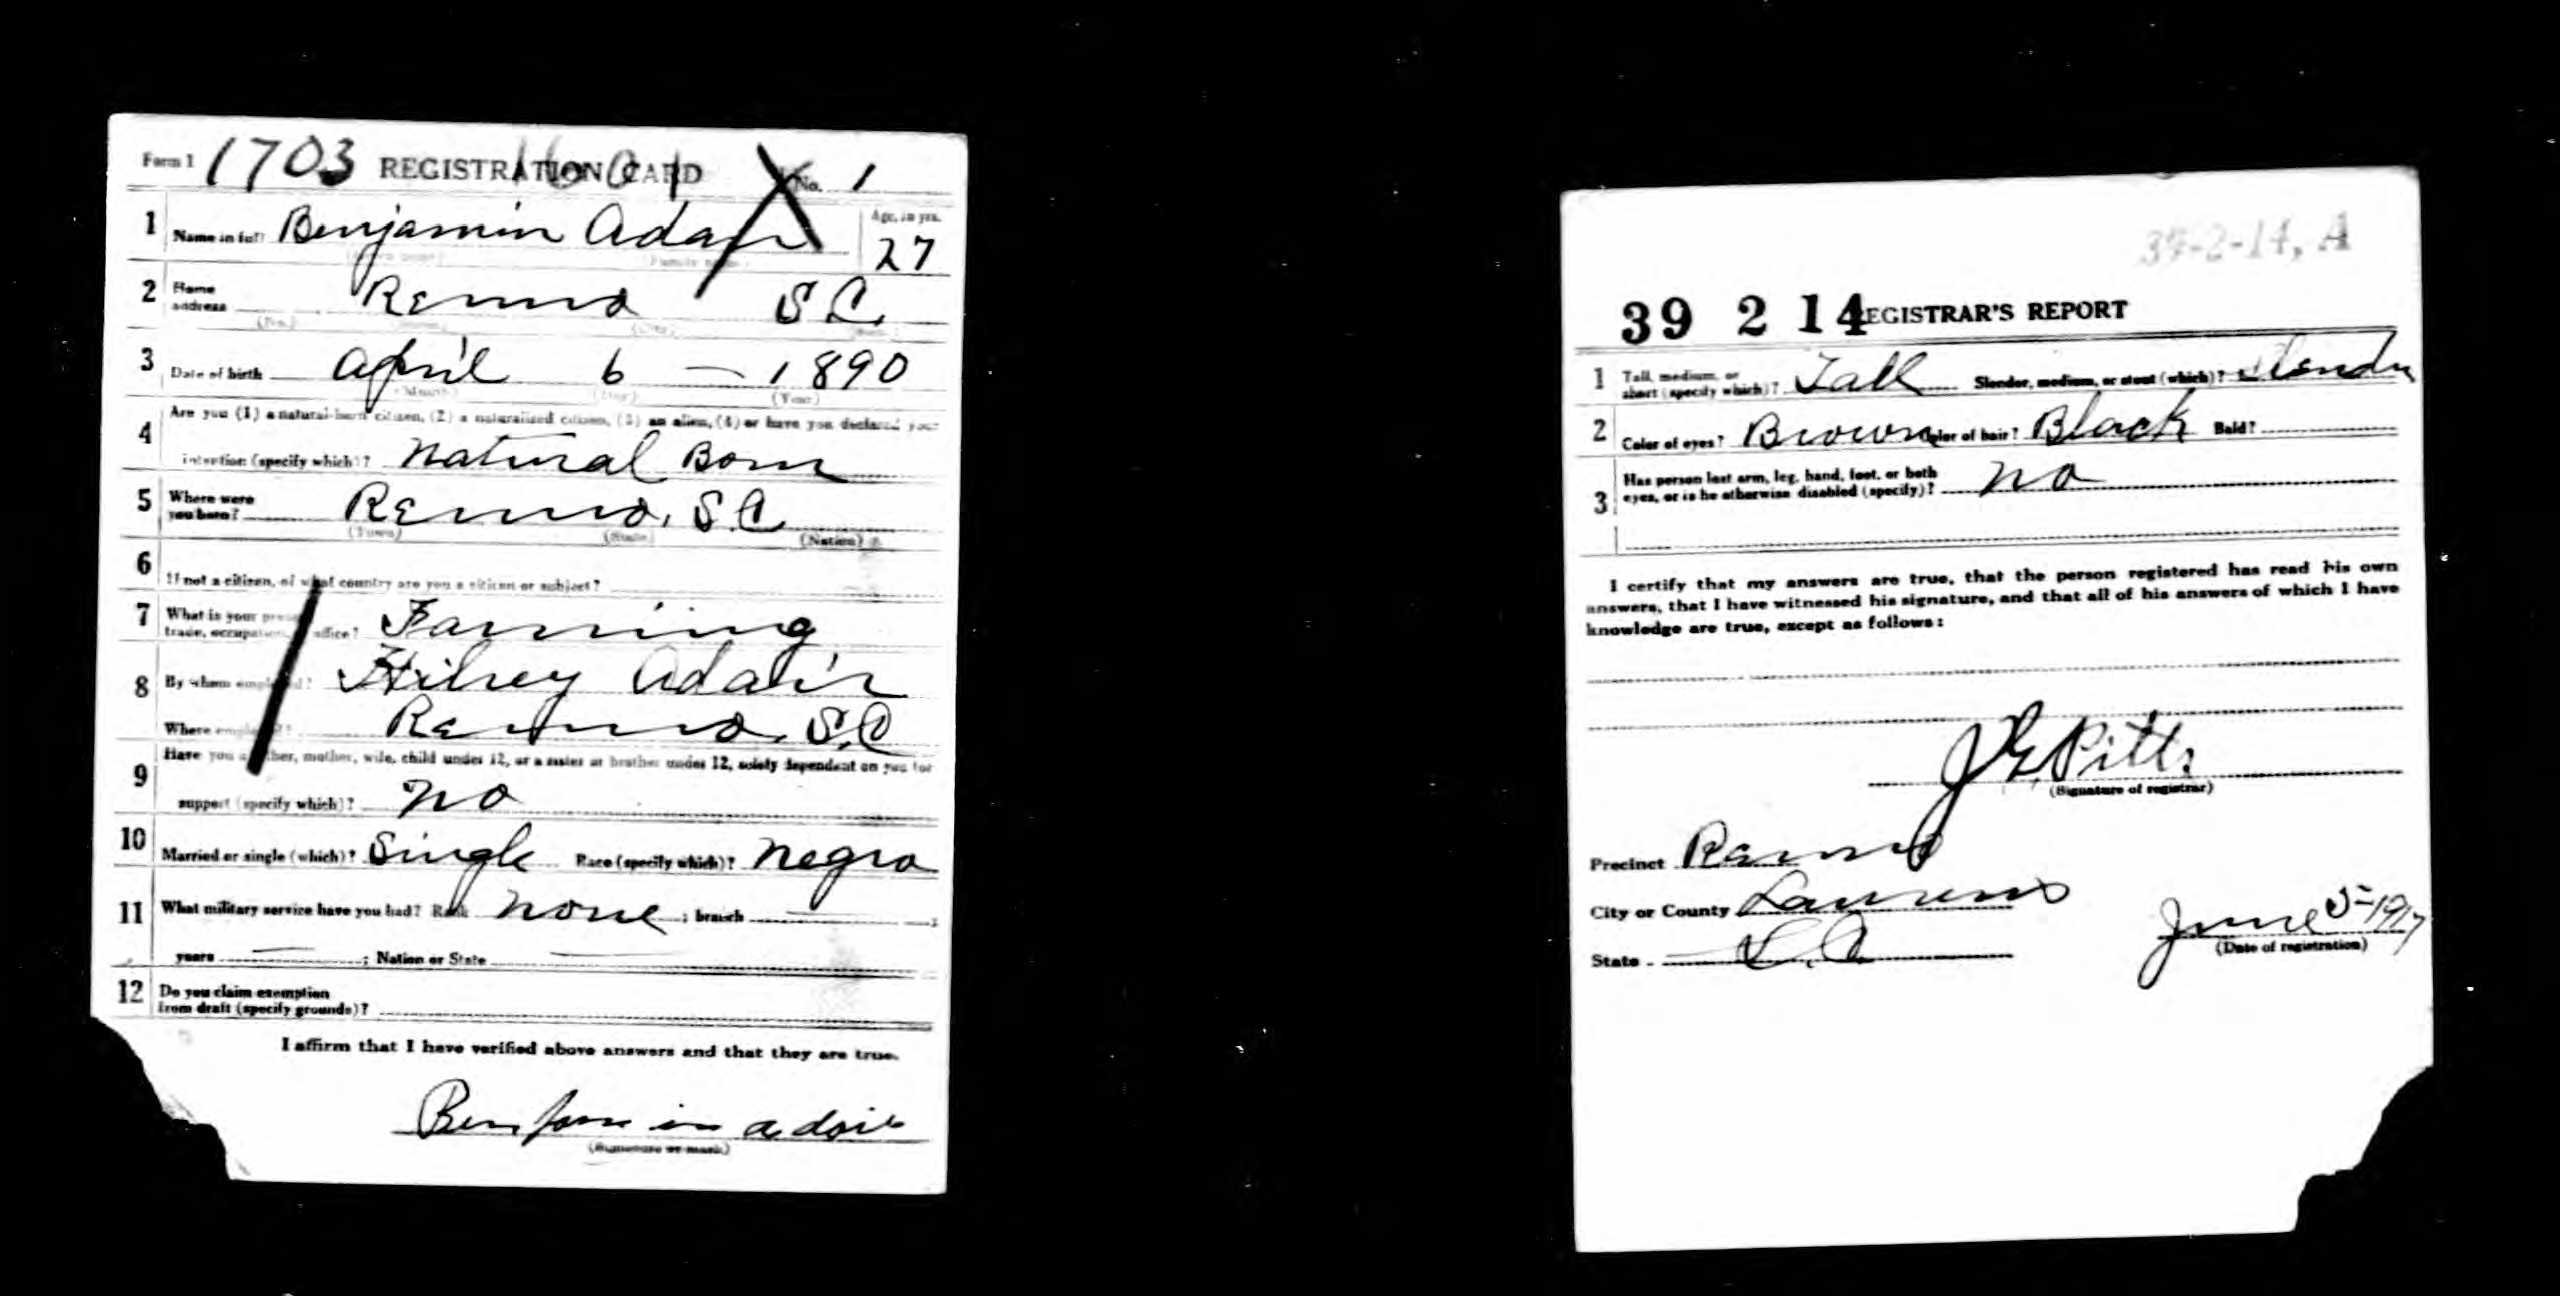 Form 1 1703 REGISTRATION CARD No. 1
1 Name in full Benjamin Adair Age, in yrs. 27
(Given name) (Family name)
2 Home address Renno S.C.
(No.) (Street) (City) (State)
3 Date of birth April 6 — 1890
(Month) (Day) (Year)
4 Are you (1) a natural-born citizen, (2) a naturalized citizen, (3) an alien, (4) or have you declared your
intention (specify which)? Natural Born
5 Where were you born? Renno, S.C
(Town) (State) (Nation)
6 If not a citizen, of what country are you a citizen or subject?
7 What is your present trade, occupation, or office? Farming
8 By whom employed? Adair
Where employed? Renno, S.C
9 Have you a father, mother, wife, child under 12, or a sister or brother under 12, solely dependent on you for
support (specify which)? no
10 Married or single (which)? Single Race (specify which)? Negro
11 What military service have you had? Rank None ; branch — ;
years — ; Nation or State —
12 Do you claim exemption
from draft (specify grounds)?
I affirm that I have verified above answers and that they are true.
Benjamin adair
(Signature or mark)
39-2-14, A
39 2 14 REGISTRAR'S REPORT
1 Tall, medium, or short (specify which)? Tall Slender, medium, or stout (which)? Slender
2 Color of eyes? Brown Color of hair? Black Bald?
3 Has person lost arm, leg, hand, foot, or both
eyes, or is he otherwise disabled (specify)? no
I certify that my answers are true, that the person registered has read his own
answers, that I have witnessed his signature, and that all of his answers of which I have
knowledge are true, except as follows:
J E Pitts
(Signature of registrar)
Precinct Renno
City or County Laurens
State S.C.
June 5-1917
(Date of registration)